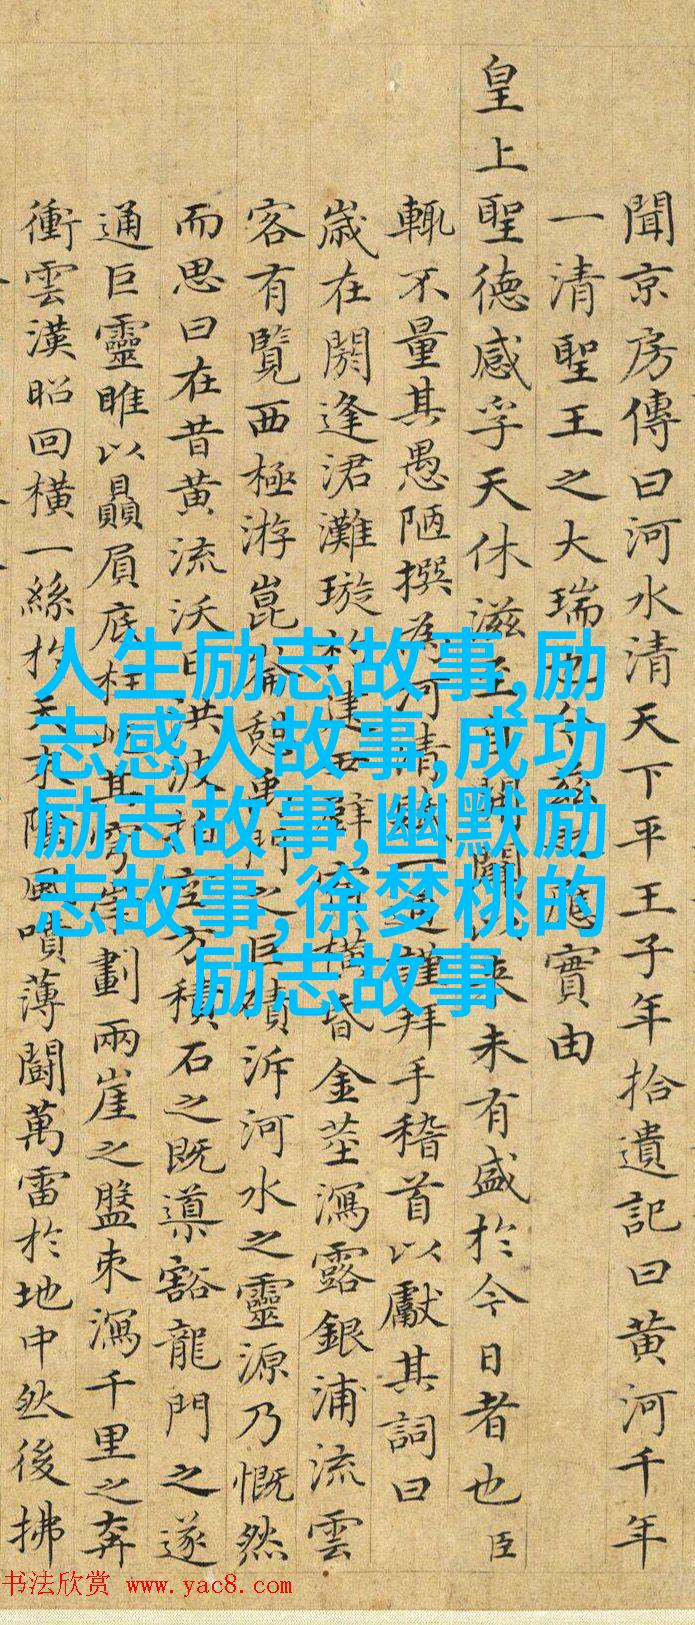 聞京房傳曰河水清天下平王子年拾遺記曰黄河千年
一清聖王之大瑞實由
皇上聖德感孚天休滋至未有盛於今日者也臣
輒不量其愚陋撰為河清拜手稽首以獻其詞曰
歳在閼逢涒灘璇金莖瀉露銀浦流雲
客有覽西極游崑憩泝河水之靈源乃慨然
而思曰在昔黄流沃日洪波積石之既導豁龍門之遂
通巨靈睢以贔屓底柱劃兩崖之盤束瀉千里之奔
衝雲漢昭回橫一絲於天噴薄鬪萬雷於地中然後拂
人生励志故事,励
志感人故事,成功
励志故事,幽默励
志故事,徐梦桃的
励志故事
书法欣赏 www.yac8.com